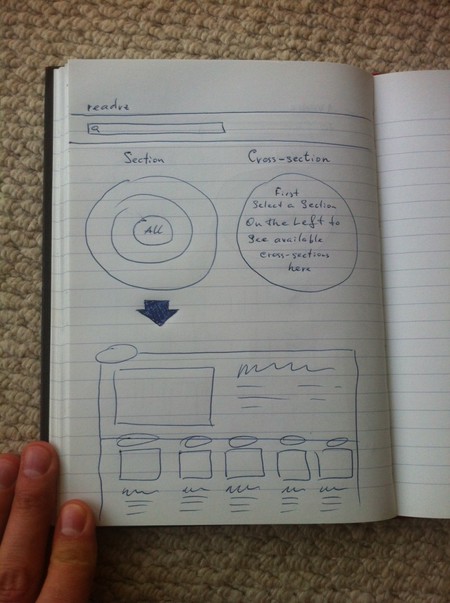 readrz
Section
Cross-section
All
First
Select a Section
On the Left to
See available
cross-sections
here